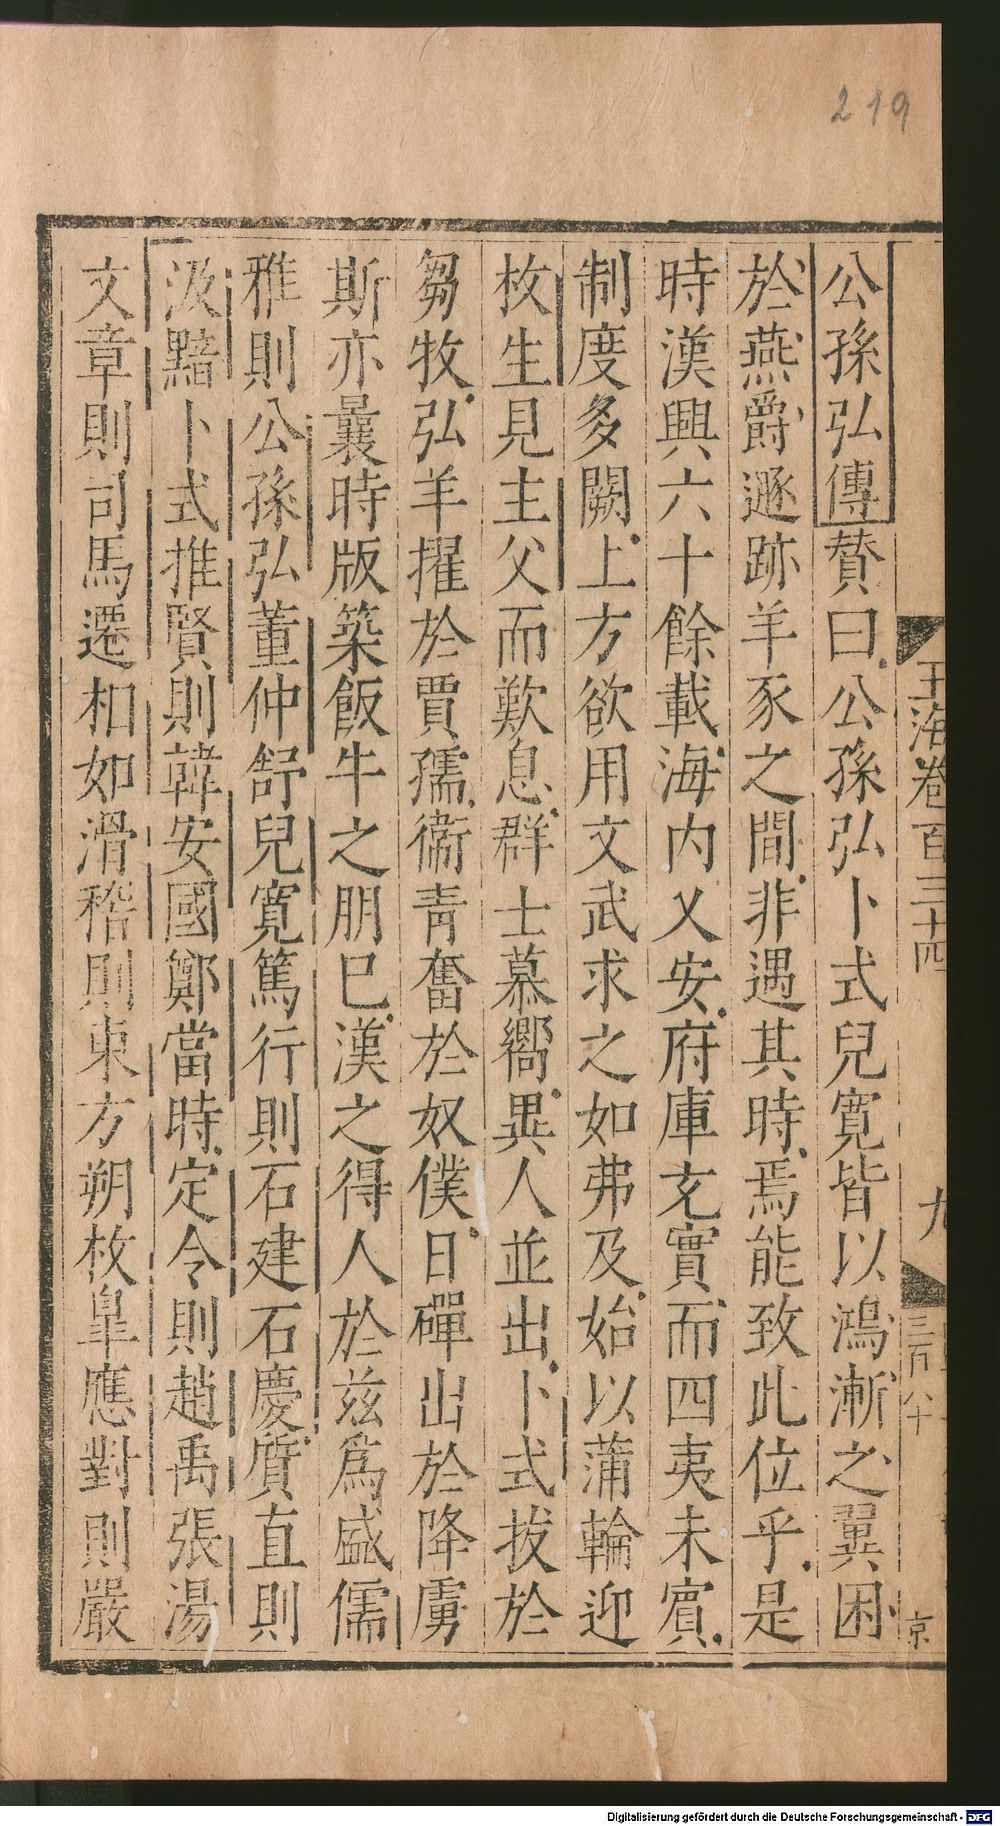 219
玉海卷百三十四
九
三百八十
京
公孫弘傳贊曰公孫弘卜式兒寬皆以鴻漸之翼困
於燕爵遯跡羊豕之間非遇其時焉能致此位乎是
時漢興六十餘載海内乂安府庫充實而四夷未賓
制度多闕上方欲用文武求之如弗及始以蒲輪迎
枚生見主父而歎息群士慕嚮異人並出卜式拔於
芻牧弘羊擢於賈孺衞青奮於奴僕日磾出於降虜
斯亦曩時版築飯牛之朋已漢之得人於兹爲盛儒
雅則公孫弘董仲舒兒寛篤行則石建石慶質直則
汲黯卜式推賢則韓安國鄭當時定令則趙禹張湯
文章則司馬遷相如滑稽則東方朔枚臯應對則嚴
Digitalisierung gefördert durch die Deutsche Forschungsgemeinschaft - DFG